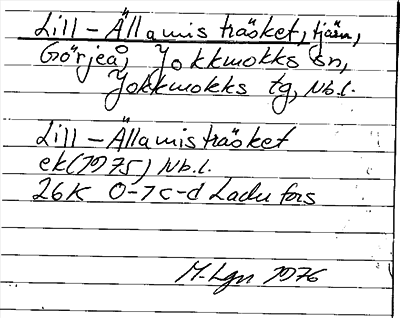 Lill-Ällamisträsket, tjärn,
Görjeå, Jokkmokks sn,
Jokkmokks tg, Nb.l.
Lill-Ällamisträsket
ek(1975) Nb.l.
26K 0-1 c-d Ladufors
M-Lgn 1976